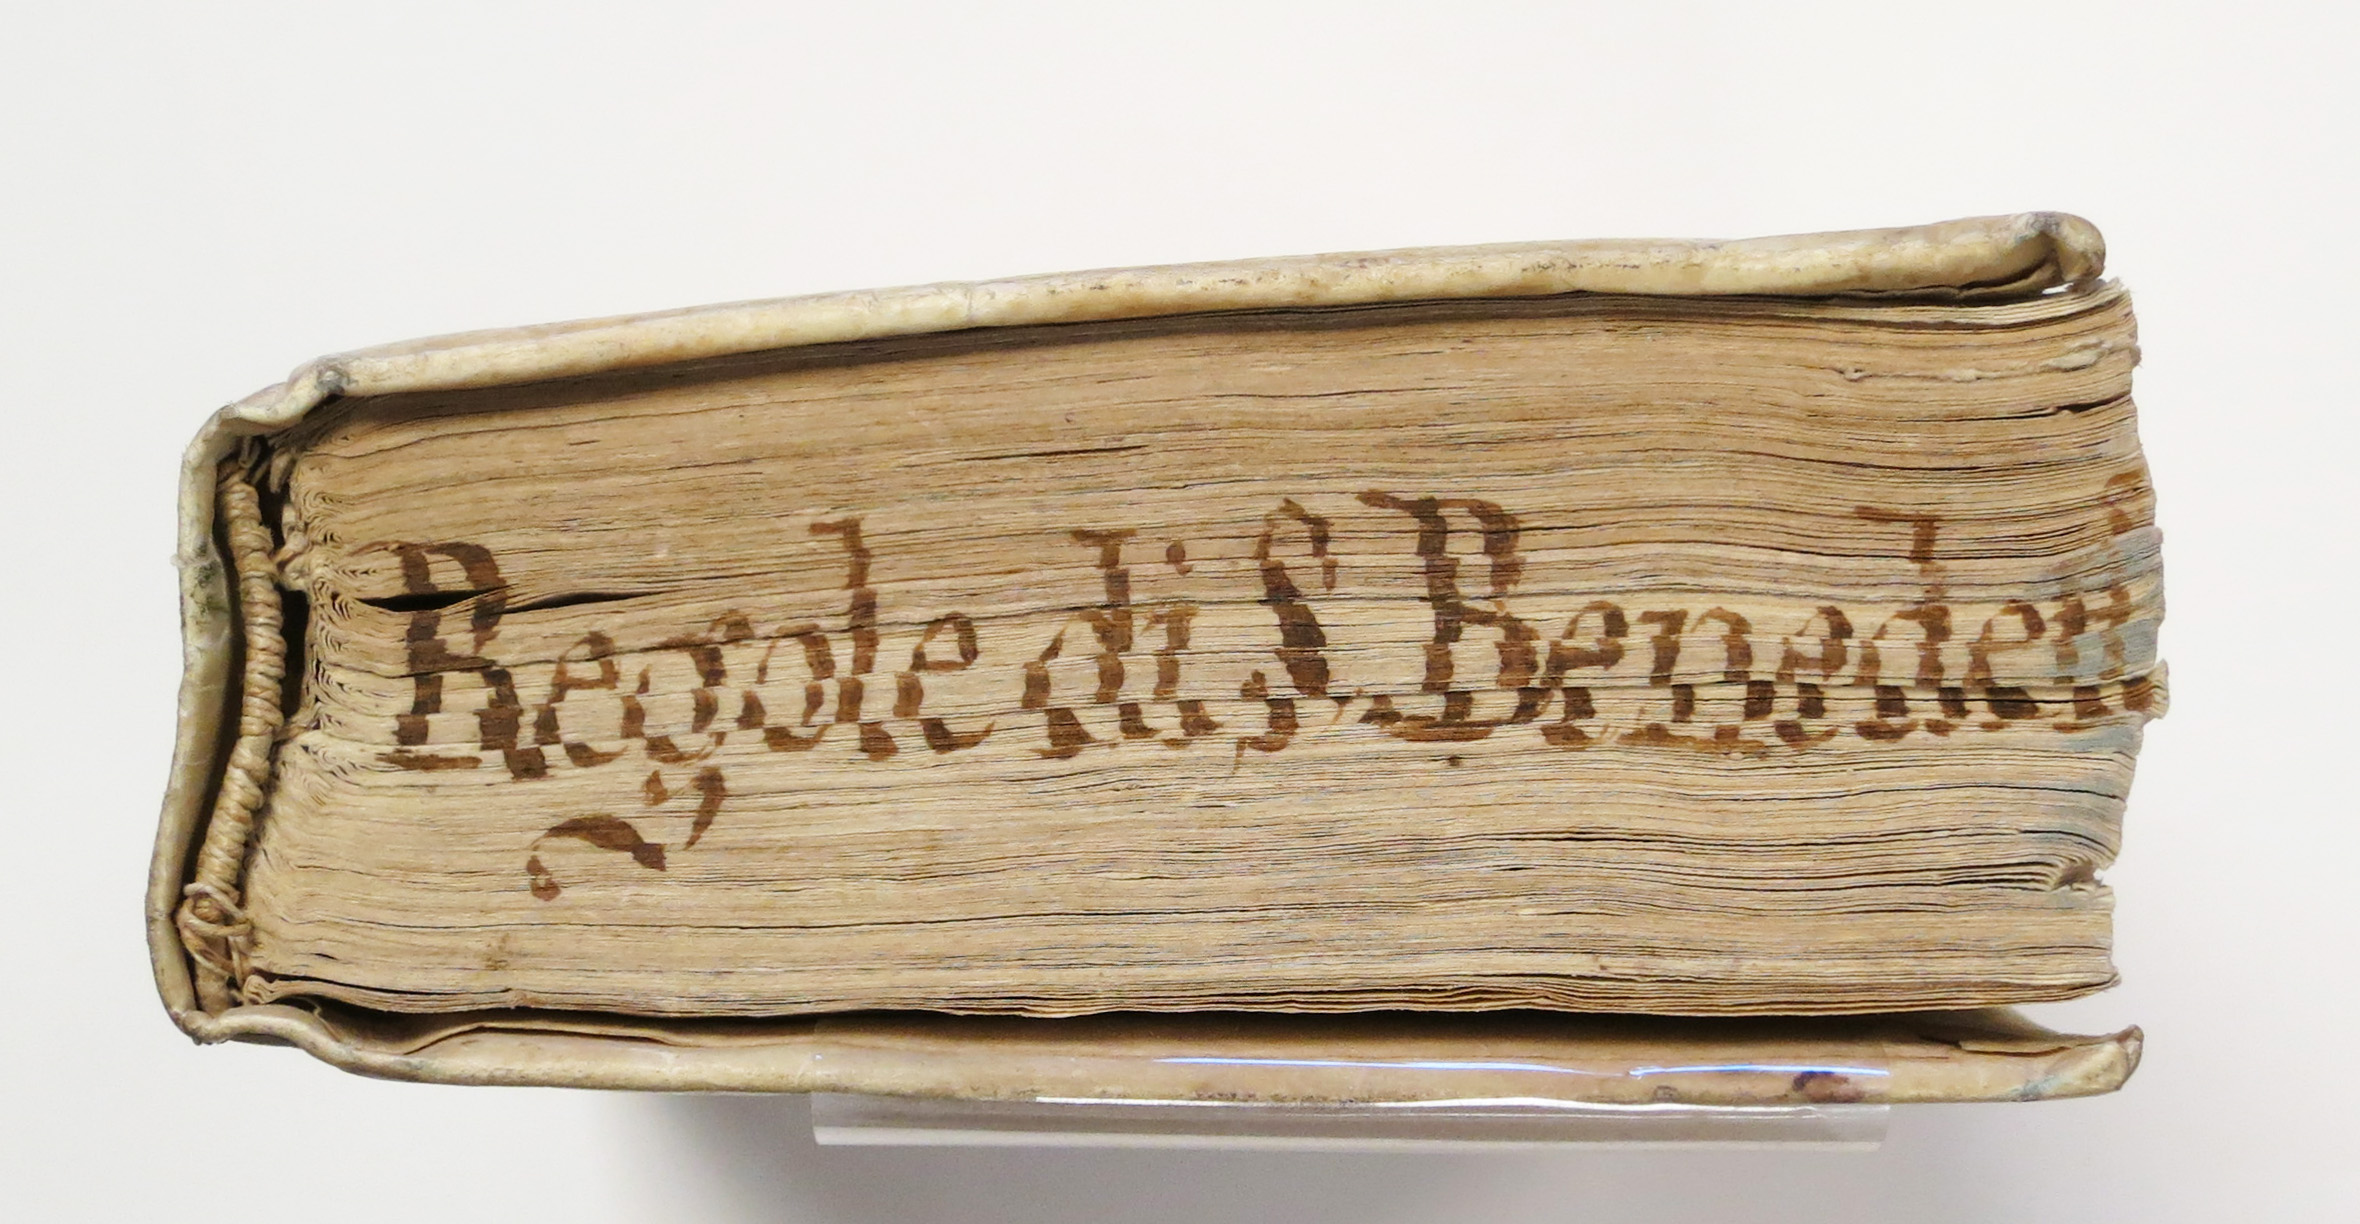 Regole di S. Benedeti